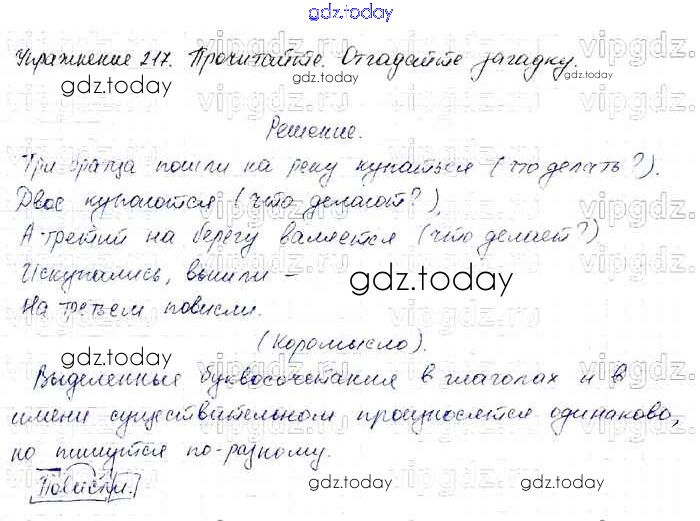 gdz.today
Упражнение 217. Прочитайте. Отгадайте загадку.
gdz.today
gdz.today
Решение.
Три братца пошли на реку купаться (что делать?).
Двое купаются (что делают?),
А третий на берегу валяется (что делает?)
Искупались, вышли –
gdz.today
На третьем повисли.
(Коромысло).
gdz.today
gdz.today
Выделенные буквосочетания в глаголах и в
имени существительном произносятся одинаково,
но пишутся по-разному.
gdz.today
gdz.today
Повисли.